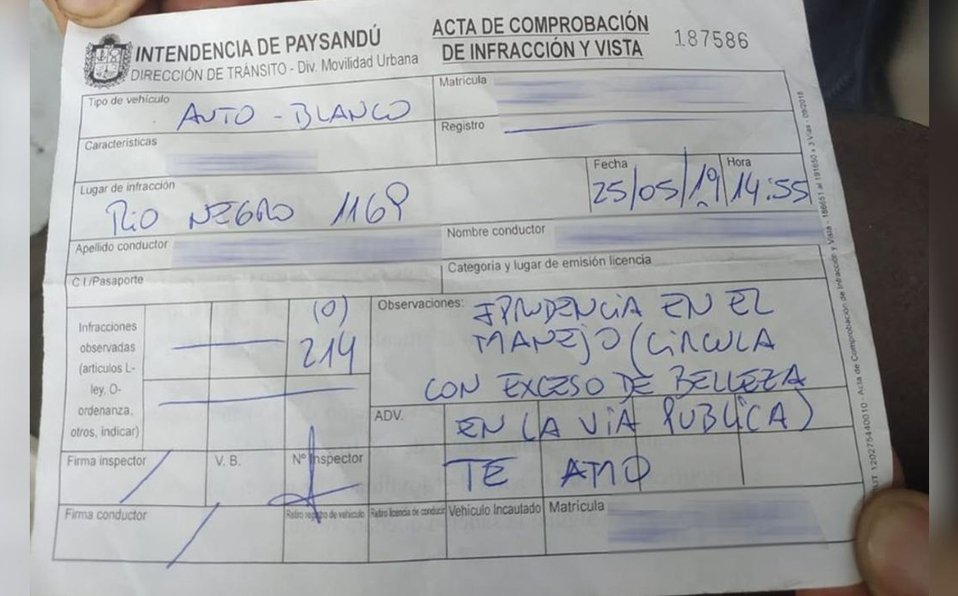 INTENDENCIA DE PAYSANDÚ
DIRECCIÓN DE TRÁNSITO - Div. Movilidad Urbana
ACTA DE COMPROBACIÓN
DE INFRACCIÓN Y VISTA
187586
Tipo de vehículo
AUTO - BLANCO
Matrícula
Características
Registro
Lugar de infracción
RIO NEGRO 1169
Fecha
25/05/19
Hora
14:55
Apellido conductor
Nombre conductor
C.I./Pasaporte
Categoria y lugar de emisión licencia
Infracciones
observadas
(artículos L-
ley, O-
ordenanza,
otros, indicar)
(0)
214
Observaciones:
IPRUDENCIA EN EL
MANEJO (CIRCULA
CON EXCESO DE BELLEZA
EN LA VIA PUBLICA)
TE AMO
ADV.
Firma inspector
V. B.
Nº Inspector
Firma conductor
Retiro registro de vehículo
Retiro licencia de conducir
Vehículo Incautado
Matrícula